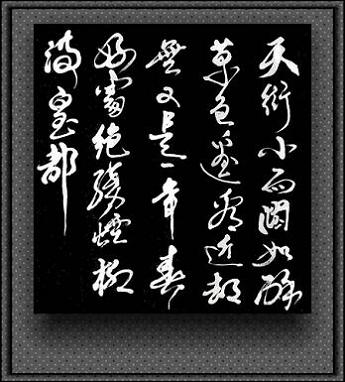 天街小雨潤如酥
草色遙看近却
無又是一年春
好處絕勝煙柳
滿皇都